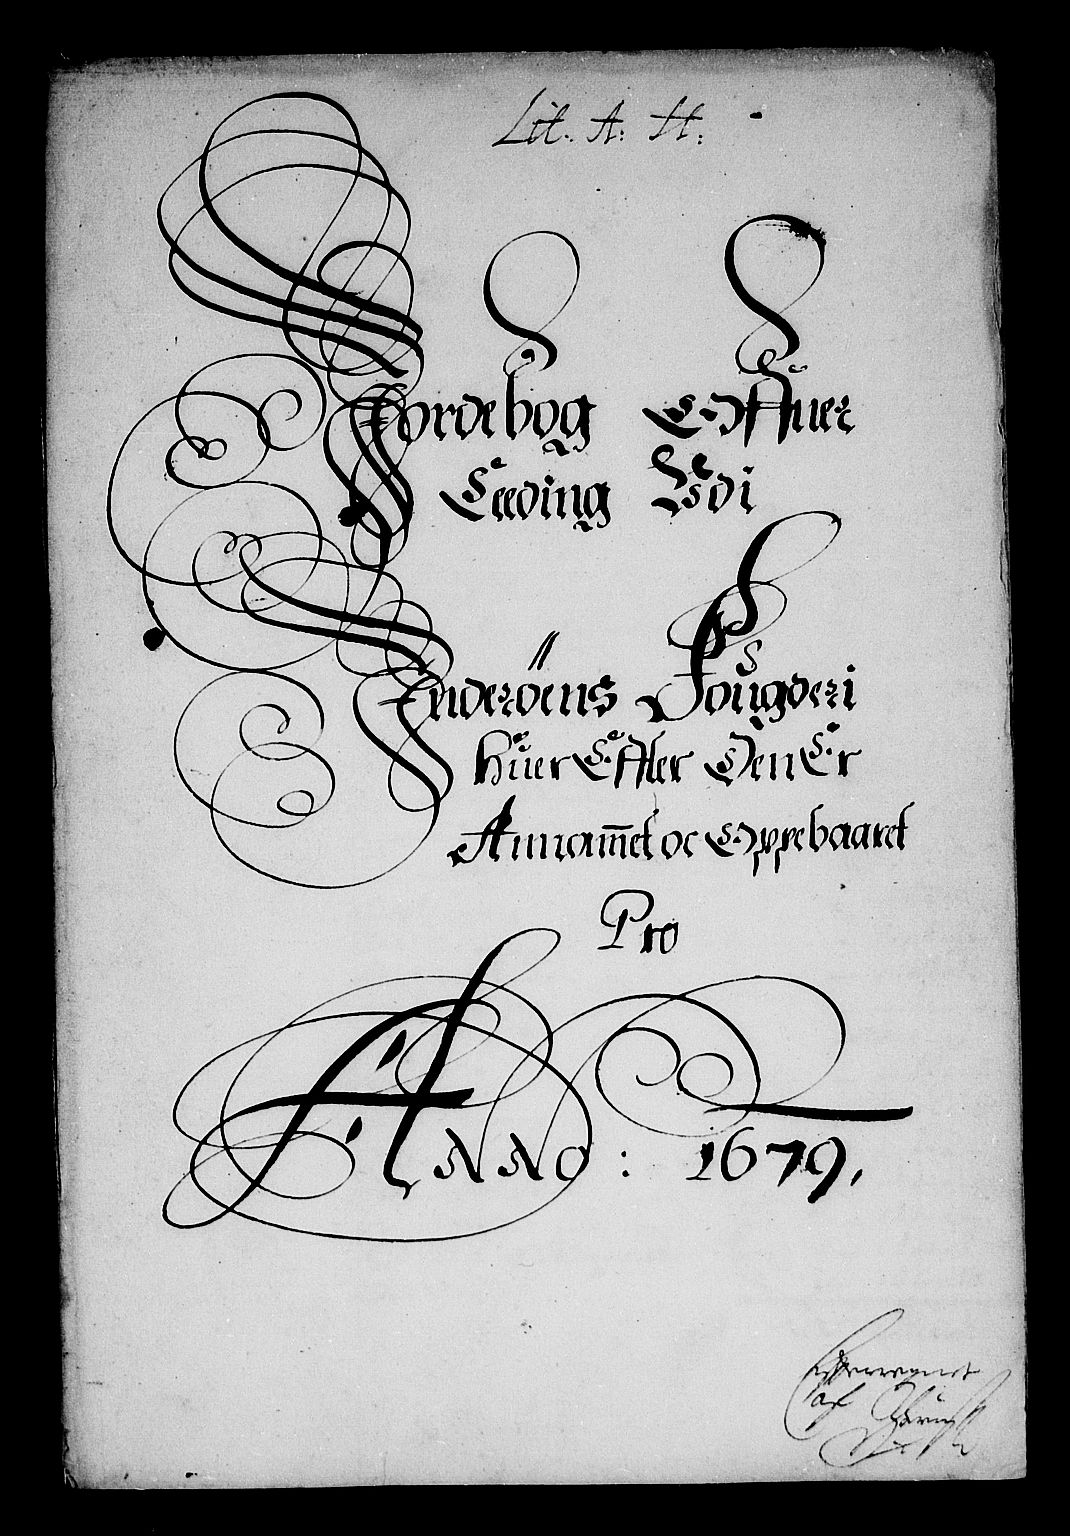 Lit. A: H:
Jordebog Offuer
Leeding Udi
Inderöens Fougderi
Huer Effter Den Er
Annam̄et oc Oppebaaret
Pro
ANNO: 1679.